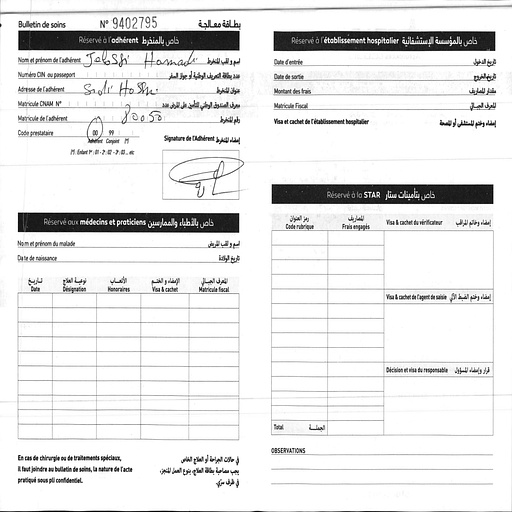 Bulletin de soins N° 9402795 بطاقة معالجة
Réservé à l'adhérent خاص بالمنخرط
Nom et prénom de l'adhérent Jebssi Hamadi اسم و لقب المنخرط
Numéro CIN ou passeport عدد بطاقة التعريف الوطنية أو جواز السفر
Adresse de l'adhérent Sidi عنوان المنخرط
Matricule CNAM N° معرف الصندوق الوطني للتأمين على المرض عدد
Matricule de l'adhérent 80050 رقم المنخرط
Code prestataire 00 99
Adhérent Conjoint (*)
(*). Enfant 1er : 01 - 2e : 02 - 3e : 03 ... etc
Signature de l'Adhérent إمضاء المنخرط
Réservé aux médecins et praticiens خاص بالأطباء والممارسين
Nom et prénom du malade اسم و لقب المريض
Date de naissance تاريخ الولادة
تاريخ نوعية العلاج الأتعاب الإمضاء و الختم المعرف الجبائي
Date Désignation Honoraires Visa & cachet Matricule fiscal
En cas de chirurgie ou de traitements spéciaux,
il faut joindre au bulletin de soins, la nature de l'acte
pratiqué sous pli confidentiel.
في حالات الجراحة أو العلاج الخاص
يجب مصاحبة بطاقة العلاج، بنوع العمل المنجز،
في ظرف سري.
Réservé à l'établissement hospitalier خاص بالمؤسسة الإستشفائية
Date d'entrée تاريخ الدخول
Date de sortie تاريخ الخروج
Montant des frais مقدار المصاريف
Matricule Fiscal المعرف الجبائي
Visa et cachet de l'établissement hospitalier إمضاء وختم المستشفى أو المصحة
Réservé à la STAR خاص بتأمينات ستار
رمز العنوان المصاريف
Code rubrique Frais engagés
Visa & cachet du vérificateur إمضاء وخاتم المراقب
Visa & cachet de l'agent de saisie إمضاء وختم الضبط الآلي
Décision et visa du responsable قرار وإمضاء المسؤول
Total الجملة
OBSERVATIONS